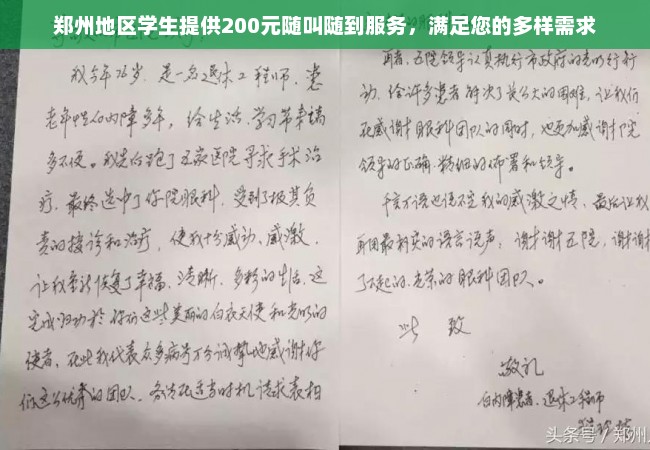 郑州地区学生提供200元随叫随到服务，满足您的多样需求
我今年76岁，是一名退休工程师，患
老年性白内障多年，给生活、学习带来诸
多不便。我先后跑了五家医院寻求手术治
疗，最终选中了你院眼科，受到了极其负
责的接诊和治疗，使我十分感动、感激，
让我重新恢复了幸福、清晰、多彩的生活，这
完成归功于你们这些美丽的白衣天使和光明的
使者，在此我代表众多病号万分诚挚地感谢你
们这么优秀的团队。各
适当时机请求表相
再者，五院领导认真执行市政府的光明行
动，给许多患者解决了长久大的困难，让我们
在感谢眼科团队的同时，也更加感谢院
领导的正确、精细的布署和领导。
千言万语也说不完我的感激之情，最后让我
再用最朴实的语言说声：谢谢五院，谢谢
了不起的、光荣的眼科团队。
此致
敬礼
白内障患者、退休工程师
头条号 / 郑州